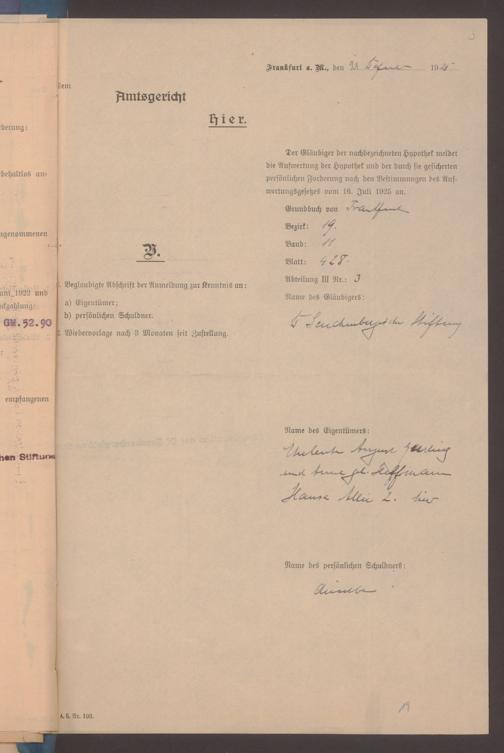 Frankfurt a. M., den 192
dem
Amtsgericht
Hier.
Der Gläubiger der nachbezeichneten Hypothek meldet
die Aufwertung der Hypothek und der durch sie gesicherten
persönlichen Forderung nach den Bestimmungen des Auf-
wertungsgesetzes vom 16. Juli 1925 an.
Grundbuch von Frankfurt
Bezirk: 19.
Band: 11
Blatt: 428.
Abteilung III Nr.: 3
Name des Gläubigers:
Senckenbergische Stiftung
V.
Beglaubigte Abschrift der Anmeldung zur Kenntnis an:
a) Eigentümer;
b) persönlichen Schuldner.
2. Wiedervorlage nach 3 Monaten seit Zustellung.
Name des Eigentümers:
August
und
Hansa Allee 2. hier
Name des persönlichen Schuldners:
dieselben
A. G. Nr. 100.
derung:
behaltlos an-
ngenommenen
uni 1922 und
GM.52.90
empfangenen
hen Stiftung